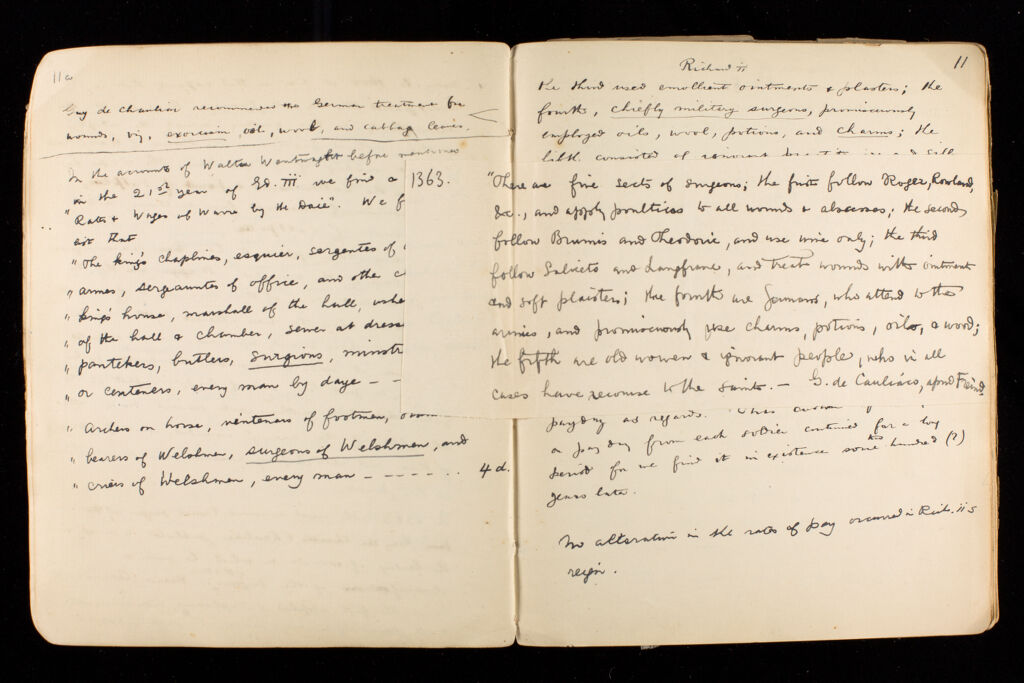 11a
Guy de Chauliac recommended the German treatment for
wounds, viz, exorcism oil, wool, and cabbage leaves.
In the accounts of Walter Wentwaght before mentioned
in the 21st year of Ed. III we find a
"Rates & Wages of Warre by the Daie". We f
out that
"The king's chaplines, esquier, sergentes of
" armes, sergeauntes of office, and othe c
" king's house, marshall of the hall, ushe
" of the hall & chamber, sewer at dress
" pantekers, butlers, surgions, minstr
" or centeners, every man by daye - -
" Archers on horse, vinteners of footmen,
" bearers of Welshmen, surgeons of Welshmen, and
" criers of Welshmen, every man - - - - - . . . 4d.
Richard II
11
the third used emollient ointments & plasters; the
fourth, chiefly military surgeons, promiscuously
employed oils, wool, potions, and charms; the
fifth consisted of ignorant
1363.
"There are five sects of surgeons; the first follow Roger, Rowland,
&c., and apply poultices to all wounds & abscesses; the second
follow Brunus and Theodoric, and use wine only; the third
follow Saliceto and Lanfranc, and treat wounds with ointment
and soft plaisters; the fourth are Germans, who attend to the
armies, and promiscuously use charms, potions, oils, & wool;
the fifth are old women & ignorant people, who in all
cases have recourse to the saints. — G. de Cauliaco, apud Freind
payday as regards. This custom
a pay day from each soldier continued for a long
period for we find it in existence some hundred (?)
years later.
No alteration in the rates of pay occurred in Rich. II's
reign.